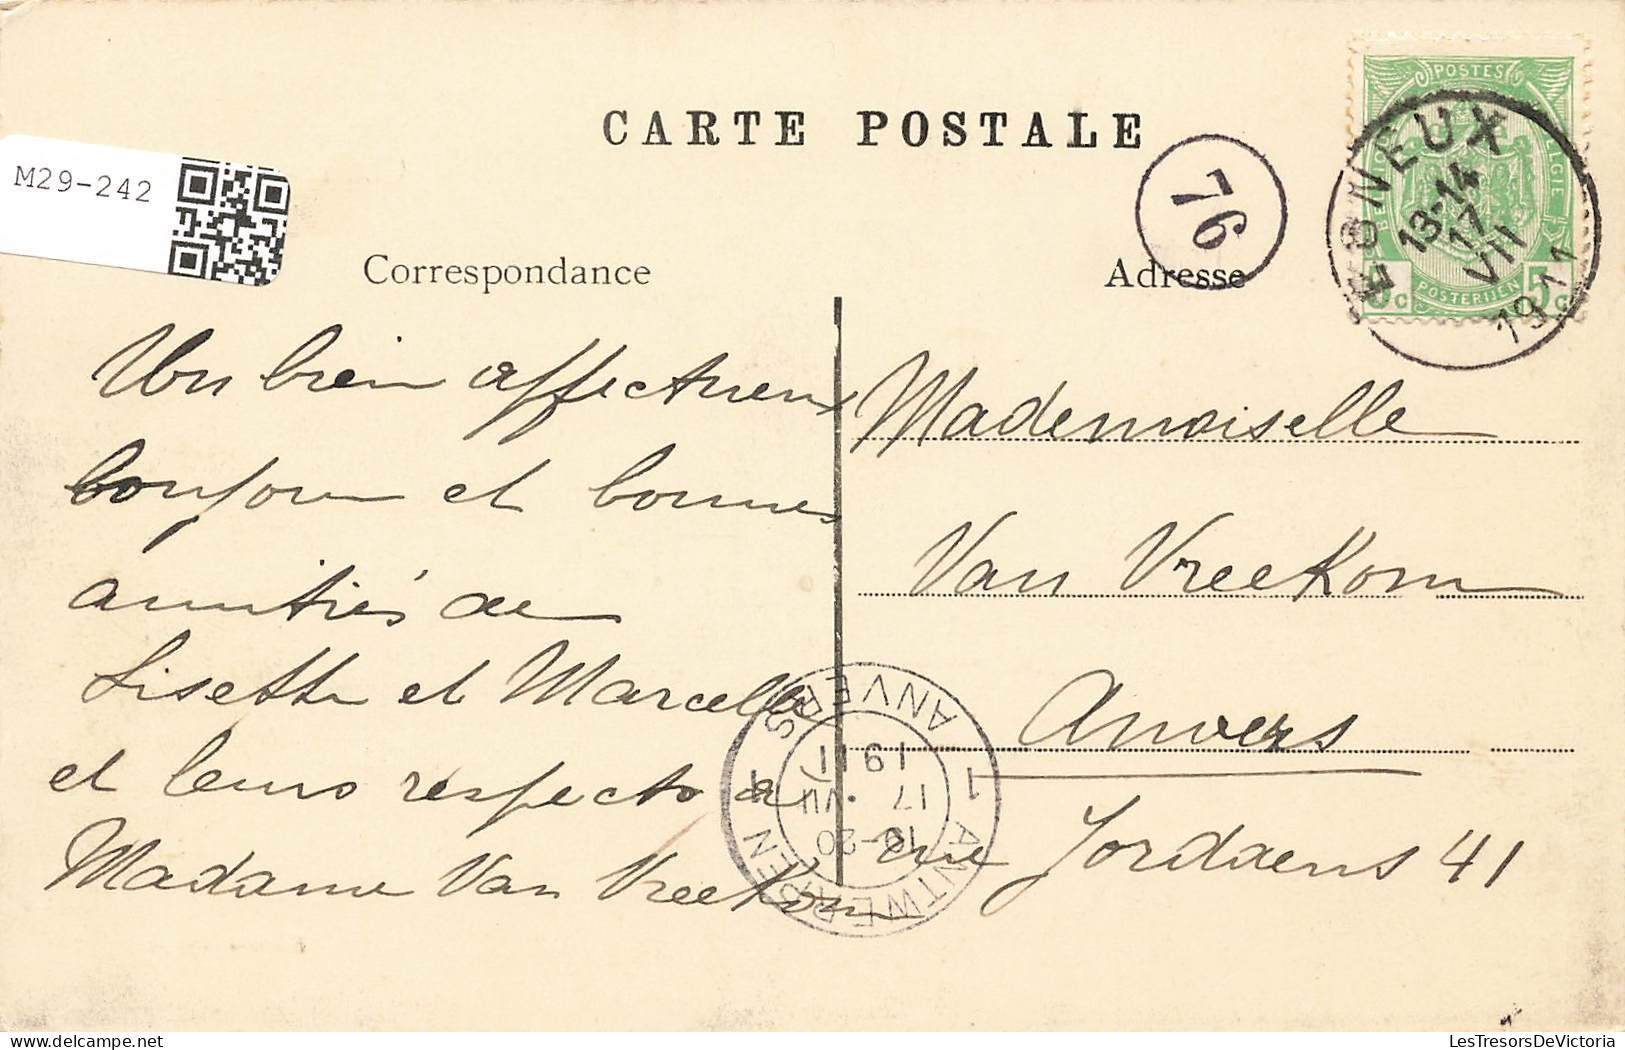 CARTE POSTALE
M29-242
76
Correspondance
Adresse
POSTES
BELGIQUE BELGIE
POSTERIJEN
5c 5c
ESNEUX
13-14
17
VII
1911
Un bien affectueux
bonjour et bonnes
amitiés de
Lisette et Marcelle
et leurs respects à
Madame Van Vreekom
Mademoiselle
Van Vreekom
Anvers
rue Jordaens 41
1 ANTWERPEN ANVERS
19-20
17 VII
1911
LesTresorsDeVictoria